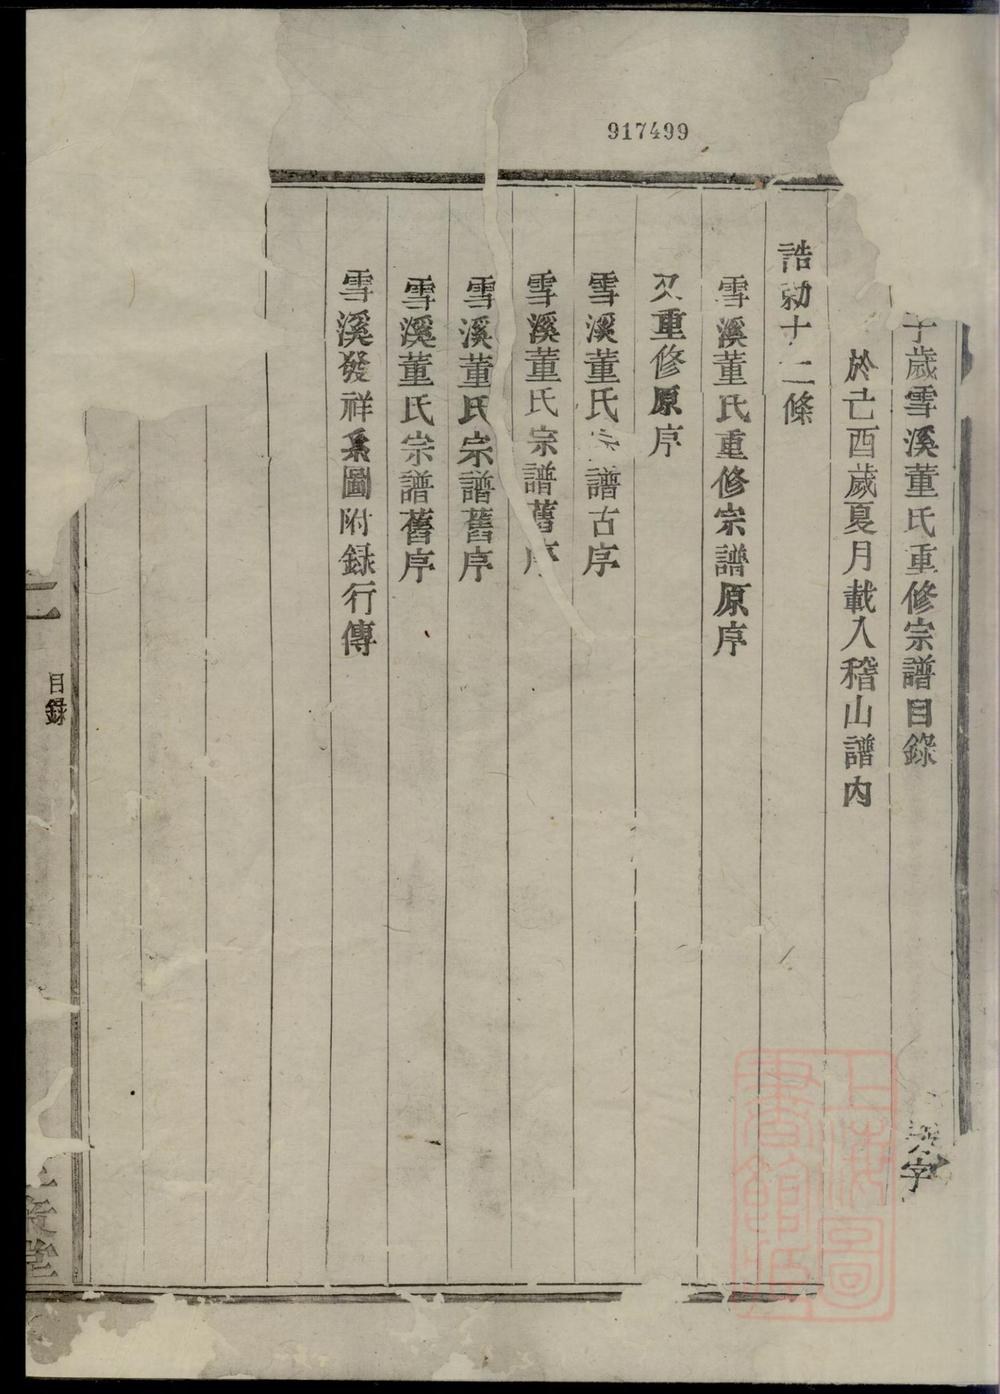 917499
歲雪溪董氏重修宗譜目錄
於己酉歲夏月載入稽山譜內
誥勅十二條
雪溪董氏重修宗譜原序
又重修原序
雪溪董氏宗譜古序
雪溪董氏宗譜舊序
雪溪董氏宗譜舊序
雪溪董氏宗譜舊序
雪溪發祥系圖附録行傳
目録
上海圖書館藏